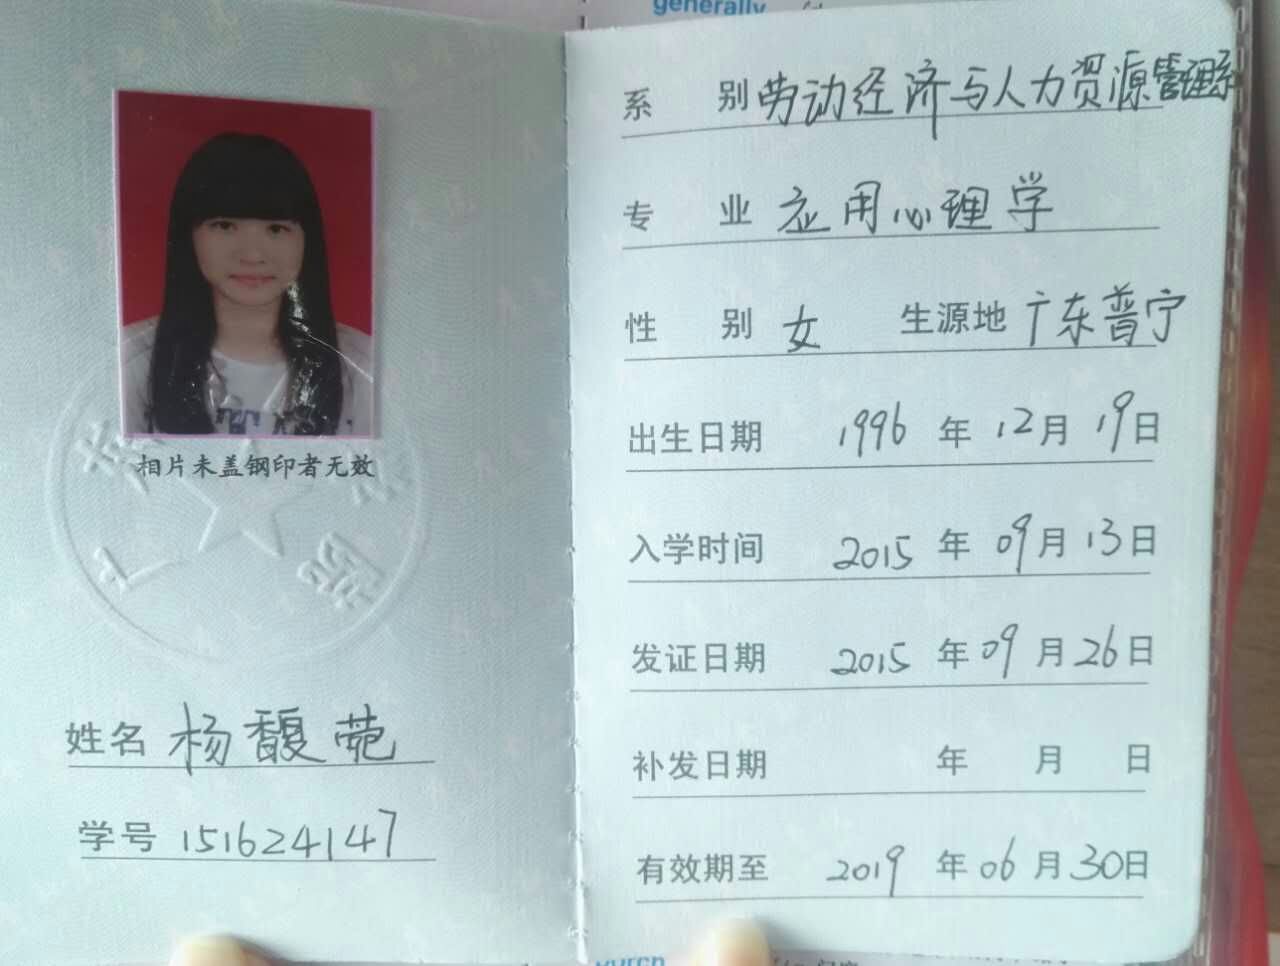 generally
相片未盖钢印者无效
姓名 杨馥菀
学号 151624147
系 别 劳动经济与人力资源管理系
专 业 应用心理学
性 别 女 生源地 广东普宁
出生日期 1996 年 12 月 19 日
入学时间 2015 年 09 月 13 日
发证日期 2015 年 09 月 26 日
补发日期 年 月 日
有效期至 2019 年 06 月 30 日